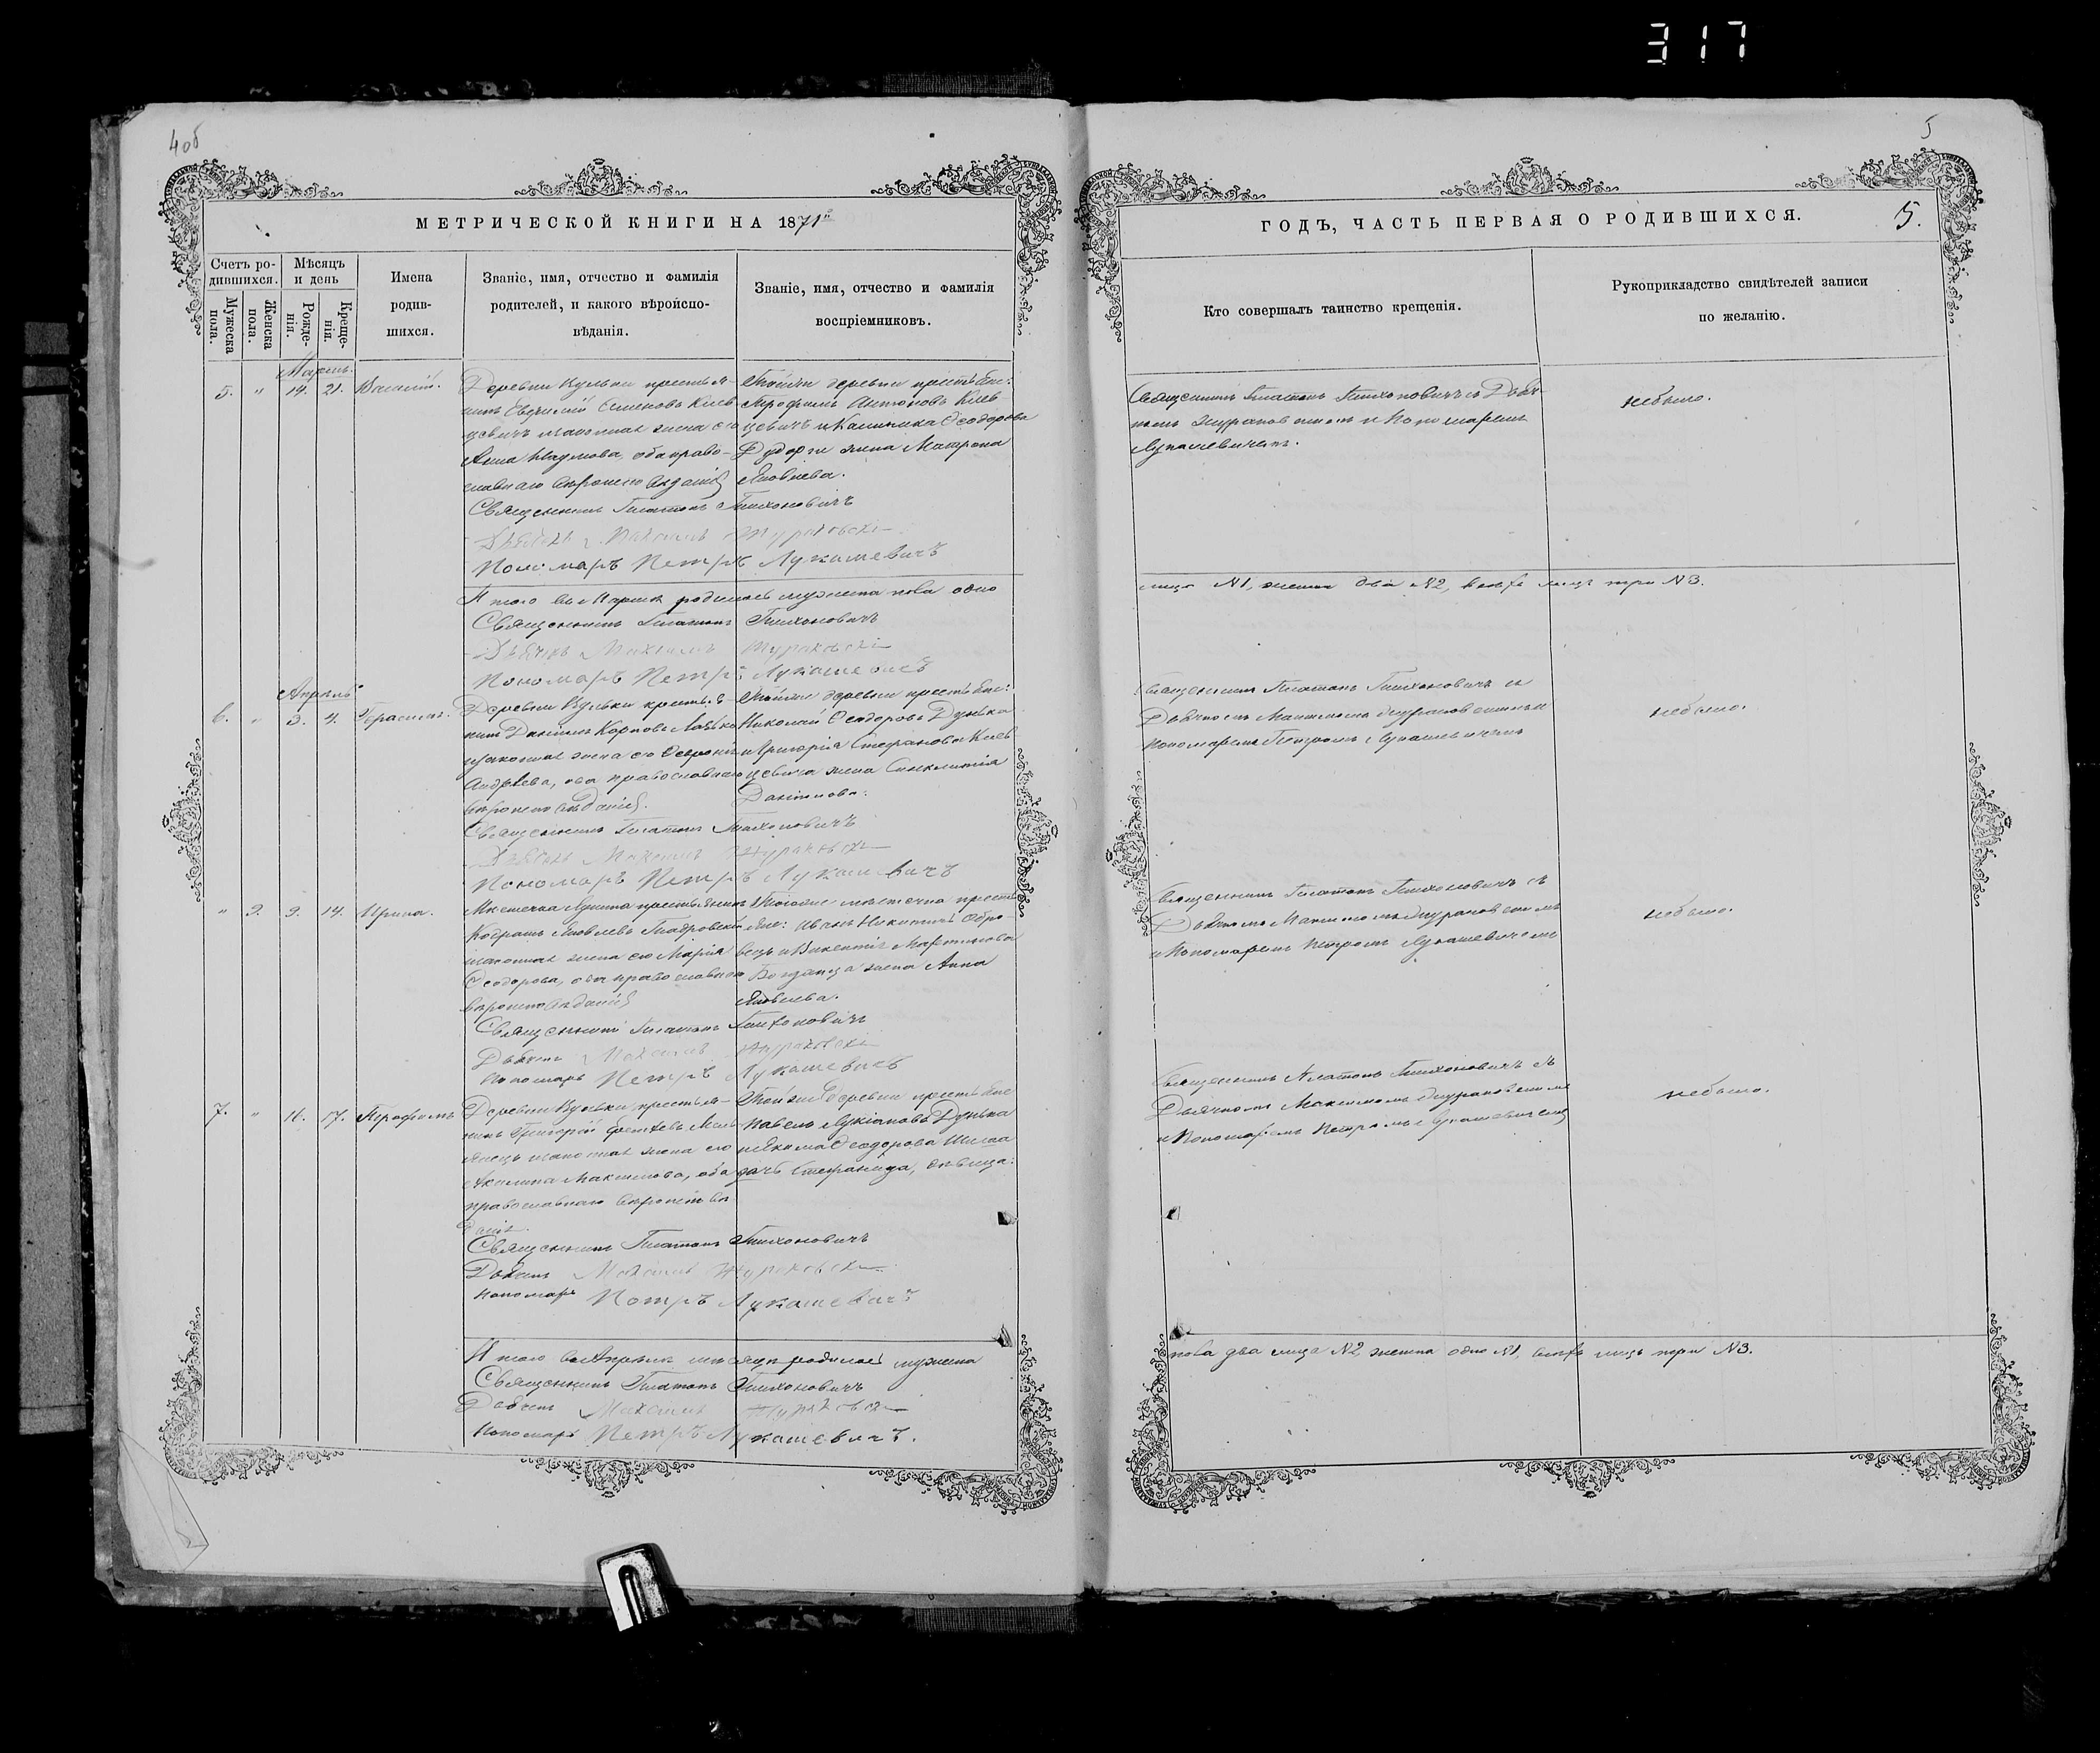 317
4об
5
МЕТРИЧЕСКОЙ КНИГИ НА 1871й
Счетъ ро-
дившихся.
Мѣсяцъ
и день
Мужеска
пола.
Женска
пола.
Рожде-
нія.
Креще-
нія.
Имена
родив-
шихся.
Званіе, имя, отчество и фамилія
родителей, и какого вѣроиспо-
вѣданія.
Званіе, имя, отчество и фамилія
воспріемниковъ.
Мартъ.
5. " 14. 21. Василій.
Деревни Кульки крестья-
нинъ Семеновъ Киев
жена его
Анна Наумова, оба право-
славнаго
Священникъ Платонъ Тихоновичъ
Дьячекъ Максимъ Жураковскі
Пономаръ Петръ Лукашевичъ
Той же деревни крест:
Трофимъ Антоновъ Киев
цевичъ и Каленика Ѳеодорова
жена Матрона
Яковлева.
Итого въ Мартѣ родилось мужеска пола одно
Священникъ Платонъ Тихоновичъ
Дьячекъ Максимъ Жураковскі
Пономаръ Петръ Лукашевичъ
Апрѣль
6. " 3. 4. Герасимъ.
Деревни Кульки кресть
нинъ Даніилъ Карповъ
законная жена его
Андреева, оба православнаго
Священникъ Платонъ Тихоновичъ
Дьячекъ Максимъ Жураковскі
Пономаръ Петръ Лукашевичъ
Той же деревни крест:
Николай Ѳеодоровъ Дулька
и Григорія Стефанова Киев
цевича жена Синклитія
Даніилова.
" 3. 9. 14. Ирина.
Мѣстечка
Яковлевъ
законная жена его Марія
Ѳеодорова, оба православнаго
Священникъ Платонъ Тихоновичъ
Дьячекъ Максимъ Жураковскі
Пономаръ Петръ Лукашевичъ
Тогоже мѣстечка крест
Иванъ Никитинъ
и Викентія Мартинова
жена Анна
Яковлева.
7. " 11. 17. Трофимъ
Деревни Кульки крестья-
нинъ Григорій
законная жена его
Акилина Максимова, оба
православнаго
Священникъ Платонъ Тихоновичъ
Дьячекъ Максимъ Жураковскі
Пономаръ Петръ Лукашевичъ
Той же деревни крест
Павелъ Лукіановъ Дулька
и Якима Ѳеодорова
дочь Стефанида, дѣвица:
Итого въ Апрѣлѣ мѣсяцѣ родилось мужеска
Священникъ Платонъ Тихоновичъ
Дьячекъ Максимъ Жураковскі
Пономаръ Петръ Лукашевичъ.
ГОДЪ, ЧАСТЬ ПЕРВАЯ О РОДИВШИХСЯ.
5.
Кто совершалъ таинство крещенія.
Рукоприкладство свидѣтелей записи
по желанію.
Священникъ Платонъ Тихоновичъ съ Дьяч-
комъ Жураковскимъ и Пономаремъ
Лукашевичемъ.
небыло.
лицо №1, женска два №2, всѣхъ лицъ три №3.
Священникъ Платонъ Тихоновичъ съ
Дьячкомъ Максимомъ Жураковскимъ и
Пономаремъ Петромъ Лукашевичемъ
небыло.
Священникъ Платонъ Тихоновичъ съ
Дьячкомъ Максимомъ Жураковскимъ
и Пономаремъ Петромъ Лукашевичемъ
небыло.
Священникъ Платонъ Тихоновичъ съ
Дьячкомъ Максимомъ Жураковскимъ
и Пономаремъ Петромъ Лукашевичемъ
небыло.
пола два лица №2 женска одно №1, всѣхъ лицъ три №3.